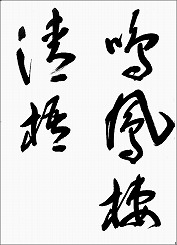 鳴鳳棲
清梧